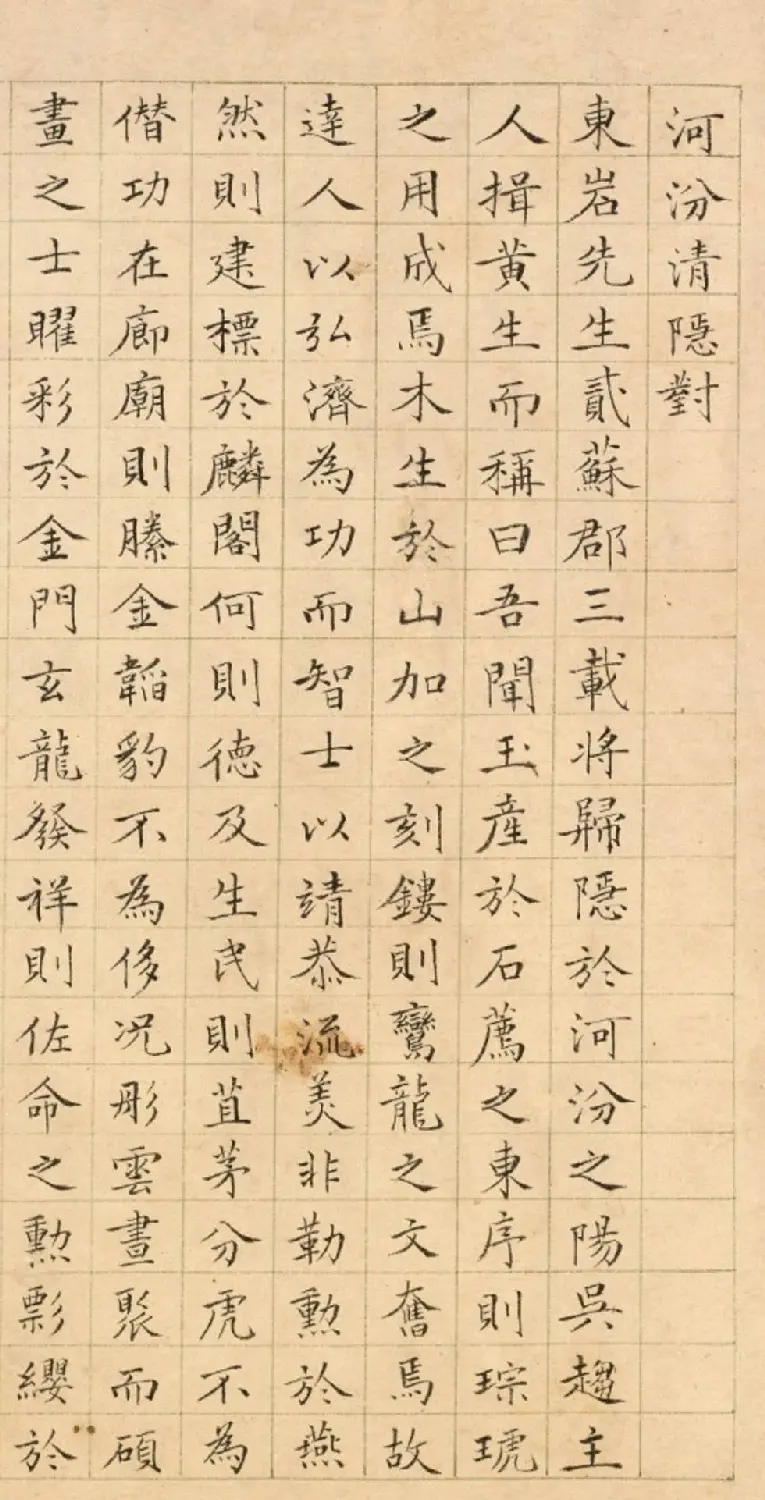 河汾清隱對
東岩先生貳蘇郡三載將歸隱於河汾之陽吳趨主
人揖黃生而稱曰吾聞玉產於石薦之東序則琮琥
之用成焉木生於山加之刻鏤則鸞龍之文奮焉故
達人以弘濟為功而智士以靖恭流美非勒勲於燕
然則建標於麟閣何則德及生民則苴茅分虎不為
僭功在廊廟則縢金韜豹不為侈况彤雲晝聚而碩
畫之士曜彩於金門玄龍發祥則佐命之勲影纓於